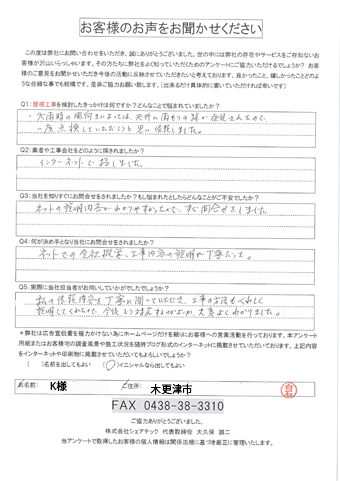 お客様のお声をお聞かせください
この度は弊社にお問い合わせをいただき、誠にありがとうございました。世の中には弊社の存在やサービスをご存知ないお
客様が沢山いらっしゃいます。その方たちに弊社をよく知っていただくためのアンケートにご協力いただけるでしょうか？ お客
様のご意見をお聞かせいただき今後の活動に反映させていきたいと考えております。良かったこと、嬉しかったことどのよ
うな些細な事でも結構です。是非ご協力お願い致します。（出来るだけ具体的に書いていただければ幸いです）
Q1：屋根工事を検討したきっかけは何ですか？どんなことで悩まれていましたか？
・大雨時の風向きによっては、天井に雨もりの跡が発見されたので、
一度点検していただこうと思い依頼しました。
Q2：業者や工事会社をどのように探されましたか？
インターネットで探しました。
Q3：当社を知りすぐにお問合せをされましたか？もし悩まれたとしたらどんなことがご不安でしたか？
ネットの説明内容がわかりやすかったので、すぐ問合せをしました。
Q4：何が決め手となり当社にお問合せをされましたか？
ネットでの会社概要、工事内容の説明が丁寧だった。
Q5：実際に当社担当者がお伺いしていかがでしたでしょうか？
私の依頼内容を丁寧に聞いていただき、工事の方法もくわしく
説明してくれたので、今後どう対応するのがよいか、大変よくわかりました。
＊弊社は広告宣伝費を極力かけない為にホームページだけを頼りにお客様への営業活動を行っております。本アンケート
用紙またはお客様宅の調査風景や施工状況を随時ブログ形式のインターネットに掲載させていただいております。上記内容
をインターネットや印刷物に掲載させていただいてもよろしいでしょうか？
（ ）名前を出してもよい （〇）イニシャルなら出してもよい
お名前： K様 ご住所： 木更津市 白石
FAX 0438-38-3310
ご協力ありがとうございました。
株式会社シェアテック 代表取締役 大久保 誠二
当アンケートで取得したお客様の個人情報は関係法規に基づき厳正に管理いたします。